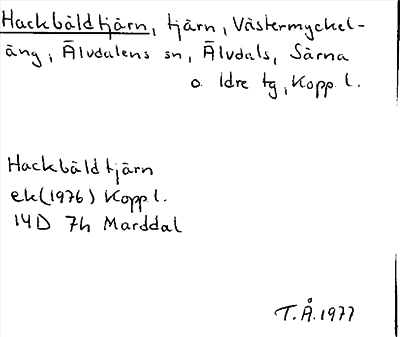 Hackbåldtjärn, tjärn, Västermyckel-
äng, Älvdalens sn, Älvdals, Särna
o. Idre tg, Kopp. l.
Hackbåldtjärn
ek (1976) Kopp l.
14D 7h Marddal
T.Å. 1977